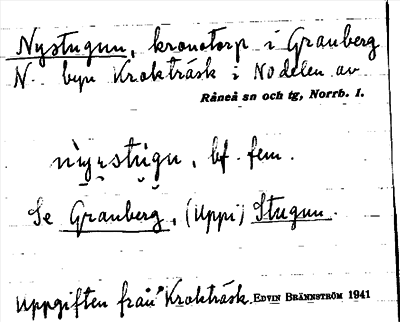 Nystugun, kronotorp i Granberg
N. byn Krokträsk i NOdelen av
Råneå sn och tg, Norrb. l.
nỳ̱stùgu, bf. fem.
Se Granberg, (Uppi) Stugun.
Uppgiften från Krokträsk. EDVIN BRÄNNSTRÖM 1941